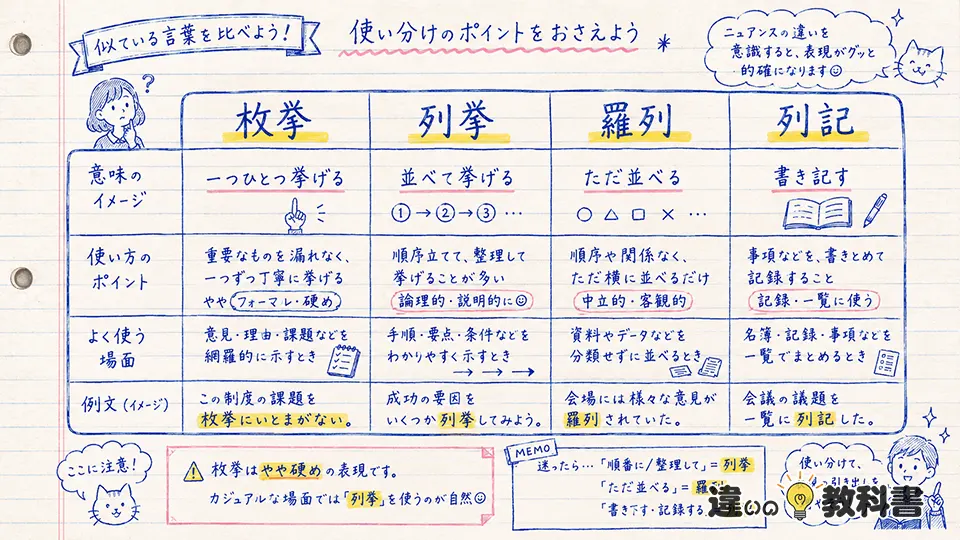 似ている言葉を比べよう！
使い分けのポイントをおさえよう
ニュアンスの違いを
意識すると、表現がグッと
的確になります
?
枚挙
列挙
羅列
列記
意味の
イメージ
一つひとつ挙げる
並べて挙げる
①→②→③…
ただ並べる
○ △ □ × …
書き記す
使い方の
ポイント
重要なものを漏れなく、
一つずつ丁寧に挙げる
やや フォーマル・硬め
順序立てて、整理して
挙げることが多い
論理的・説明的に
順序や関係なく、
ただ横に並べるだけ
中立的・客観的
事項などを、書きとめて
記録すること
記録・一覧に使う
よく使う
場面
意見・理由・課題などを
網羅的に示すとき
手順・要点・条件などを
わかりやすく示すとき
→ → →
資料やデータなどを
分類せずに並べるとき
名簿・記録・事項などを
一覧でまとめるとき
例文（イメージ）
この制度の課題を
枚挙にいとまがない。
成功の要因を
いくつか列挙してみよう。
会場には様々な意見が
羅列されていた。
会議の議題を
一覧に列記した。
ここに注意！
枚挙はやや硬めの表現です。
カジュアルな場面では「列挙」を使うのが自然
MEMO
迷ったら…「順番に/整理して」=列挙
「ただ並べる」=羅列
「書き下す・記録する
使い分けて、
違いの教科書